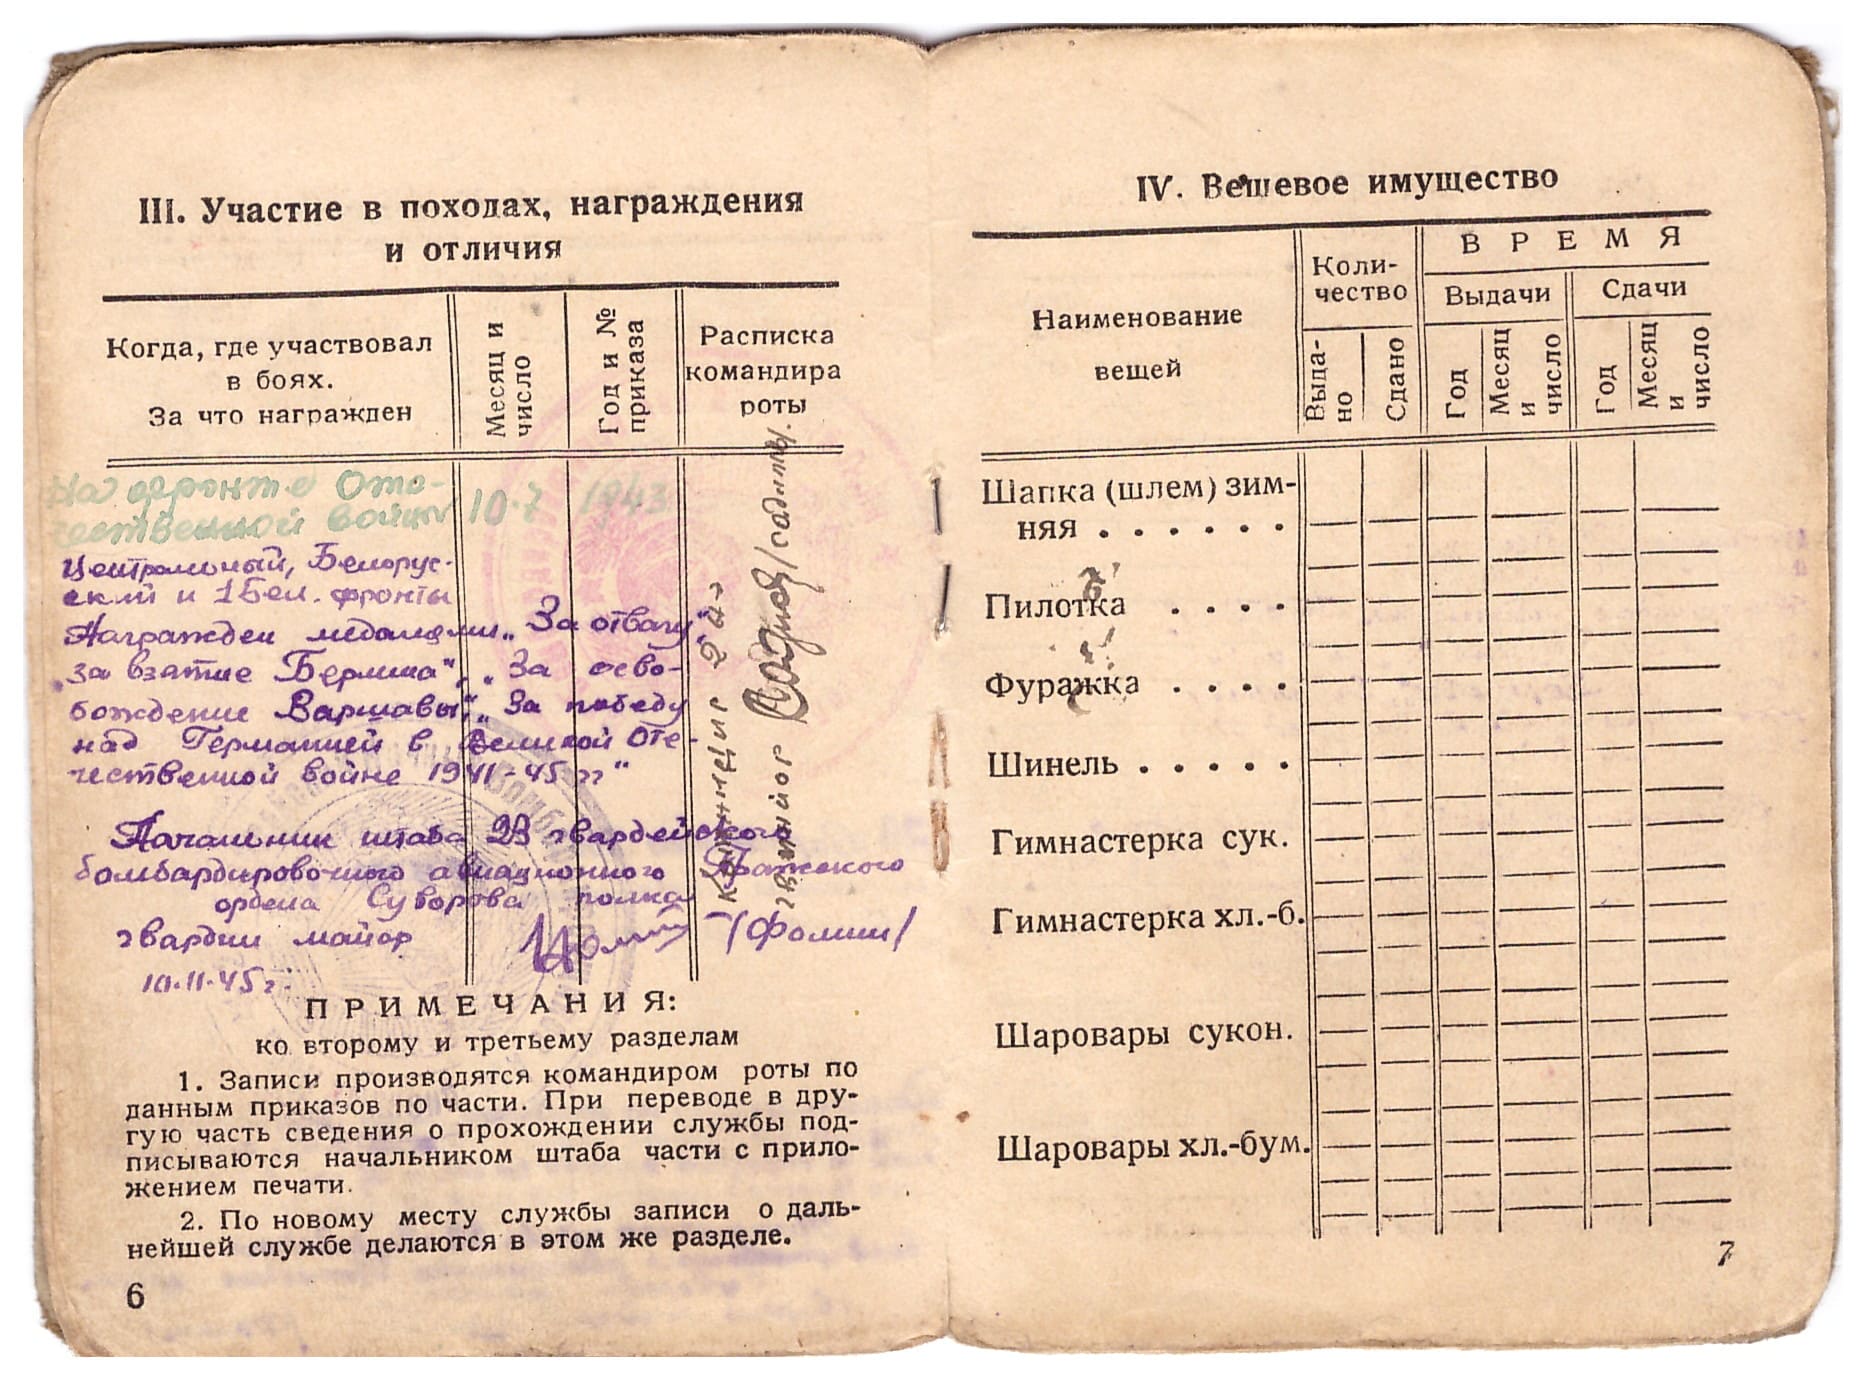 III. Участие в походах, награждения
и отличия
Когда, где участвовал
в боях.
За что награжден
Месяц и
число
Год и №
приказа
Расписка
командира
роты
На фронте Оте-
чественной войны 10.7 1943
Центральный, Белорус-
ский и 1 Бел. фронты
Награжден медалями „За отвагу"
„за взятие Берлина", „За осво-
бождение Варшавы", „За победу
над Германией в Великой Оте-
чественной войне 1941-45 гг"
Начальник штаба 23 гвардейского
бомбардировочного авиационного Пражского
ордена Суворова полка
гвардии майор /Фомин/
10.11.45г.
Командир
гв. майор
ПРИМЕЧАНИЯ:
ко второму и третьему разделам
1. Записи производятся командиром роты по
данным приказов по части. При переводе в дру-
гую часть сведения о прохождении службы под-
писываются начальником штаба части с прило-
жением печати.
2. По новому месту службы записи о даль-
нейшей службе делаются в этом же разделе.
6
IV. Вещевое имущество
Наименование
вещей
Коли-
чество
ВРЕМЯ
Выдачи
Сдачи
Выда-
но
Сдано
Год
Месяц
и
число
Год
Месяц
и
число
Шапка (шлем) зим-
няя . . . . . .
Пилотка . . . .
Фуражка . . . .
Шинель . . . . .
Гимнастерка сук.
Гимнастерка хл.-б.
Шаровары сукон.
Шаровары хл.-бум.
7